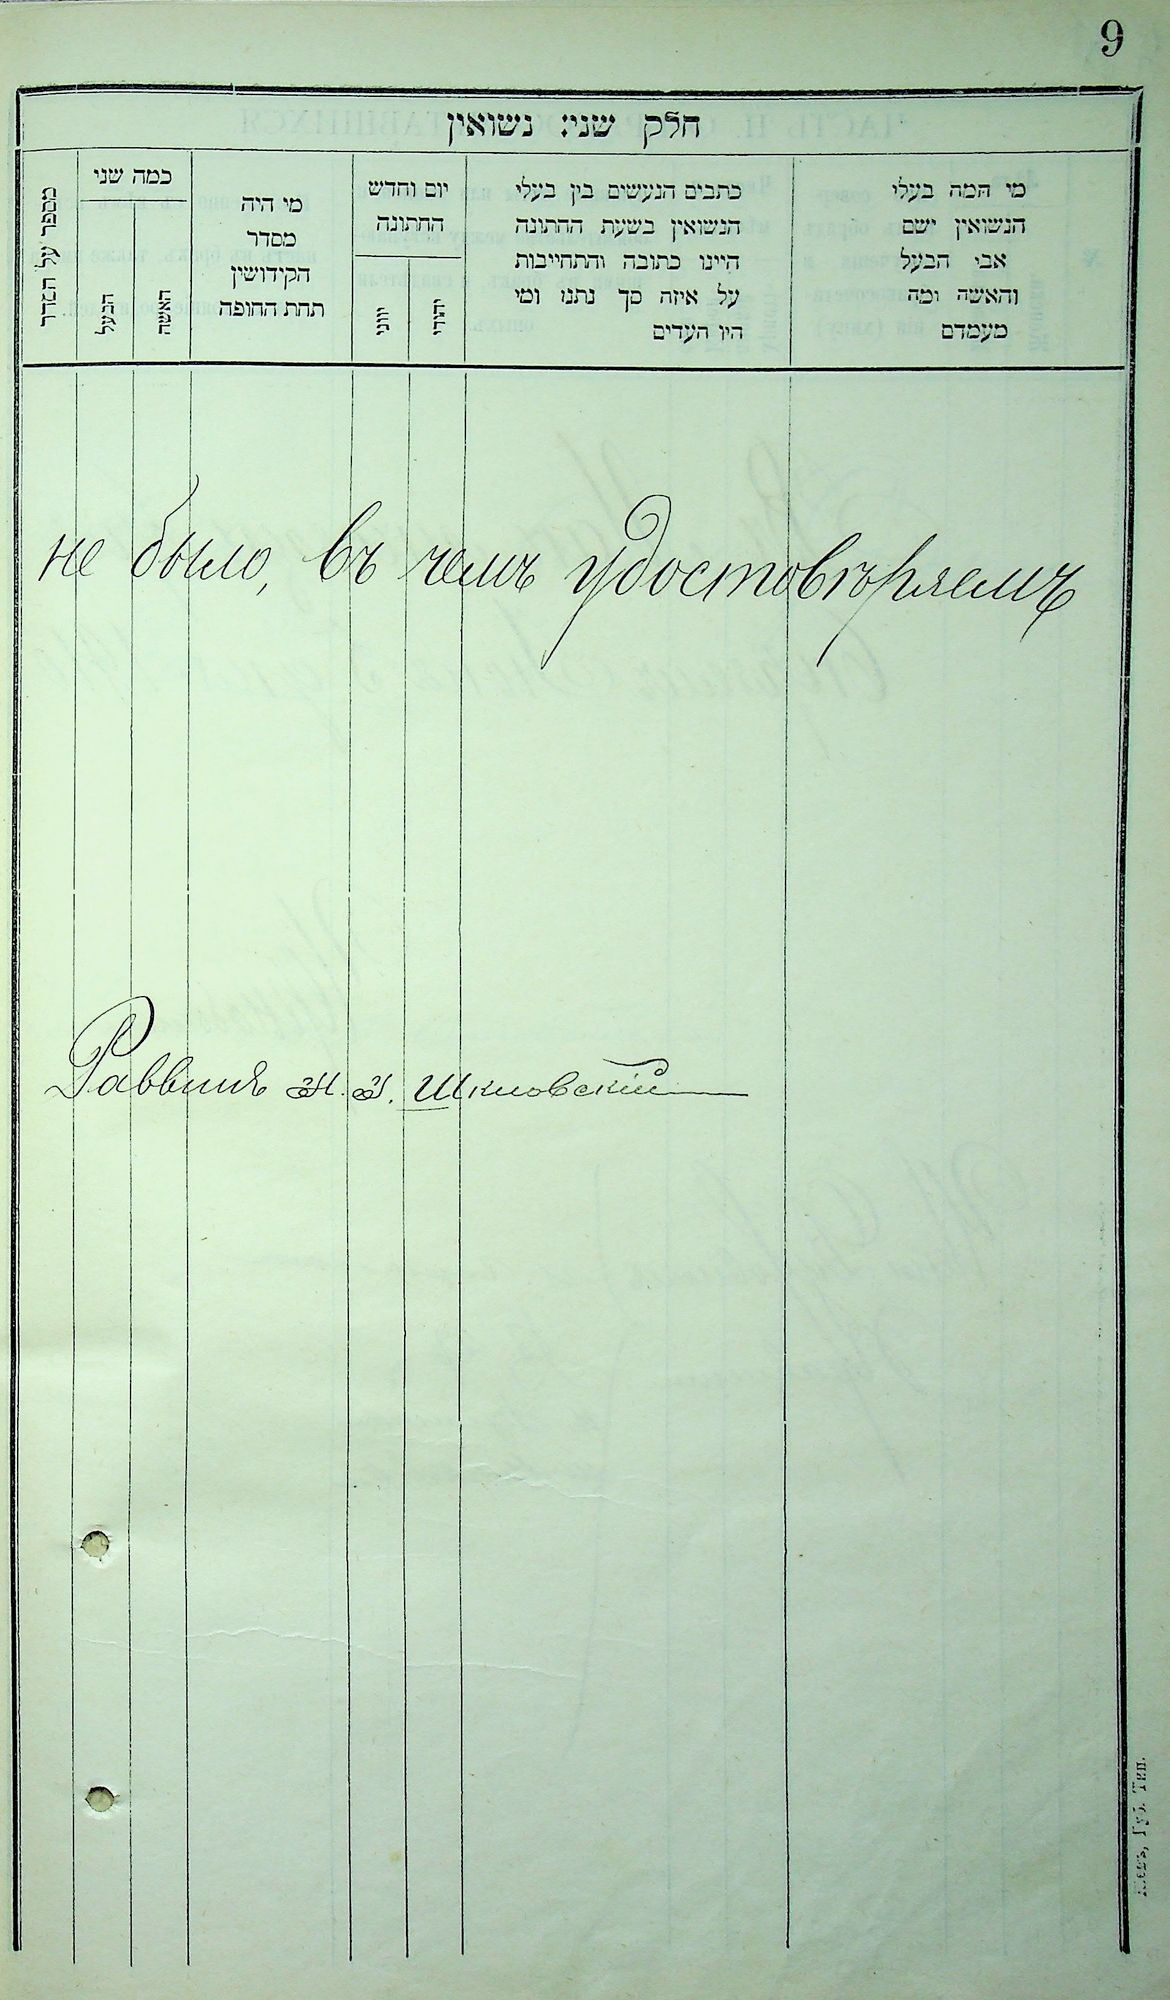 9
חלק שני: נשואין
מספר על הסדר
כמה שני
הבעל
האשה
מי היה
מסדר
הקידושין
תחת החופה
יום וחדש
החתונה
יוני
יהודי
כתבים הנעשים בין בעלי
הנשואין בשעת החתונה
היינו כתובה והתחייבות
על איזה סך נתנו ומי
היו העדים
מי המה בעלי
הנשואין ושם
אבי הבעל
והאשה ומה
מעמדם
не было, въ чемъ удостовѣряемъ
Раввинъ Шкловскій
Кіевъ, Губ. Тип.